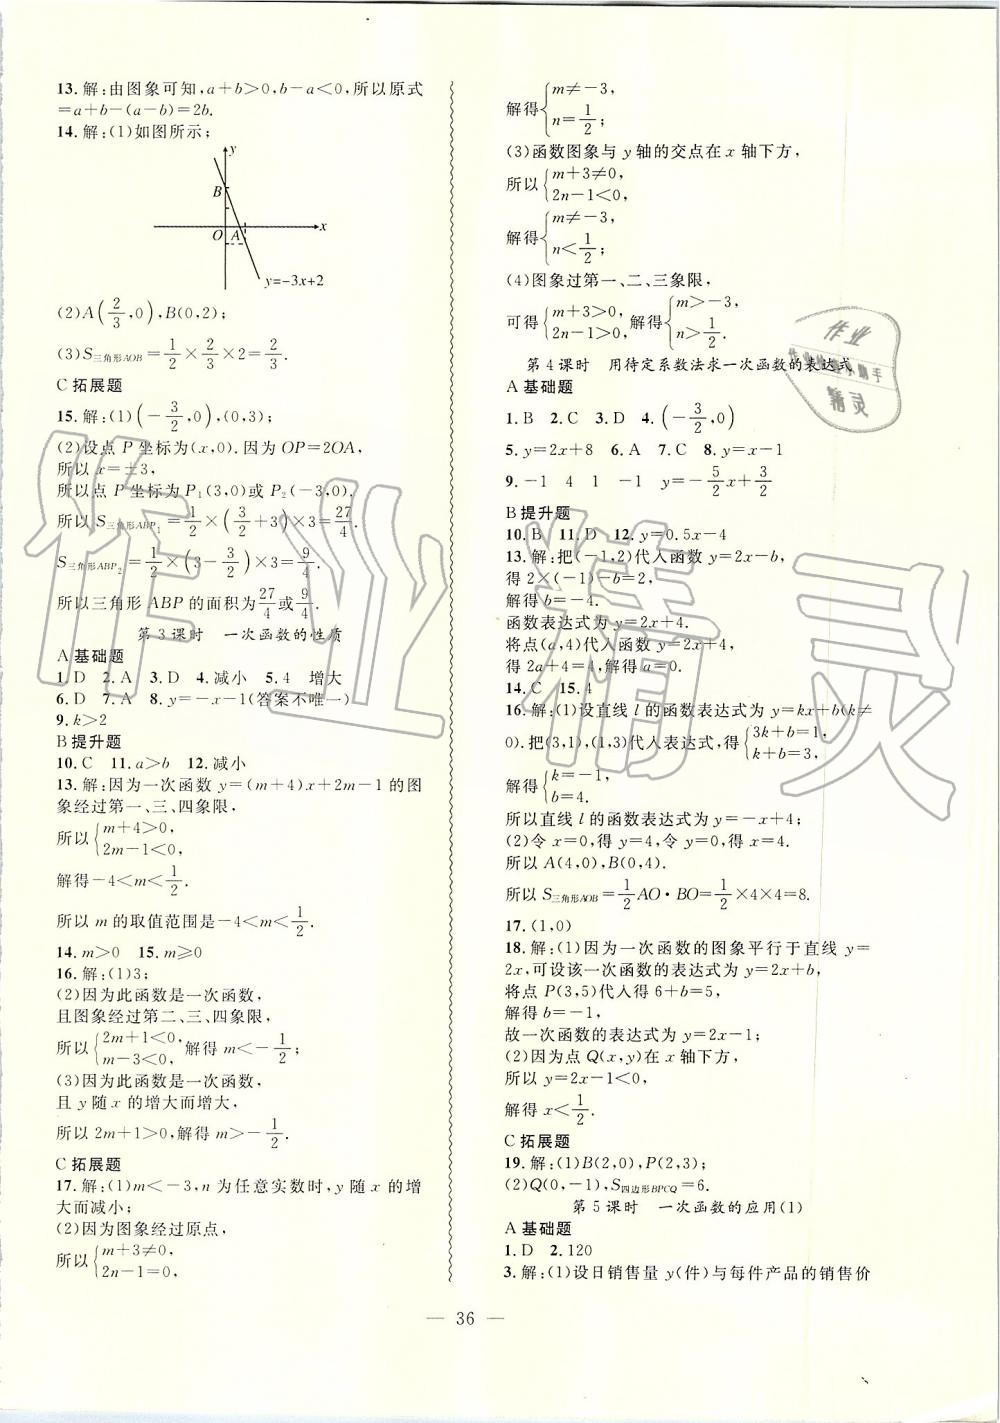 13.解:由图象可知,a+b>0,b-a<0,所以原式
=a+b-(a-b)=2b.
14.解:(1)如图所示;
y
B
O A x
y=-3x+2
(2)A(2/3,0),B(0,2);
(3)S三角形AOB=1/2×2/3×2=2/3.
C 拓展题
15.解:(1)(-3/2,0),(0,3);
(2)设点 P 坐标为(x,0).因为 OP=2OA,
所以 x=±3,
所以点 P 坐标为 P₁(3,0)或 P₂(-3,0).
所以 S三角形ABP₁=1/2×(3/2+3)×3=27/4
S三角形ABP₂=1/2×(3-3/2)×3=9/4.
所以三角形 ABP 的面积为27/4或9/4.
第 3 课时 一次函数的性质
A 基础题
1.D 2.A 3.D 4.减小 5.4 增大
6.D 7.A 8.y=-x-1(答案不唯一)
9.k>2
B 提升题
10.C 11.a>b 12.减小
13.解:因为一次函数 y=(m+4)x+2m-1 的图
象经过第一、三、四象限,
所以{m+4>0,
2m-1<0,
解得-4<m<1/2.
所以 m 的取值范围是-4<m<1/2.
14.m>0 15.m≥0
16.解:(1)3;
(2)因为此函数是一次函数,
且图象经过第二、三、四象限,
所以{2m+1<0, 解得 m<-1/2;
m-3<0,
(3)因为此函数是一次函数,
且 y 随 x 的增大而增大,
所以 2m+1>0,解得 m>-1/2.
C 拓展题
17.解:(1)m<-3,n 为任意实数时,y 随 x 的增
大而减小;
(2)因为图象经过原点,
所以{m+3≠0,
2n-1=0,
解得{m≠-3,
n=1/2;
(3)函数图象与 y 轴的交点在 x 轴下方,
所以{m+3≠0,
2n-1<0
解得{m≠-3,
n<1/2;
(4)图象过第一、二、三象限,
可得{m+3>0, 解得{m>-3,
2n-1>0, n>1/2.
第 4 课时 用待定系数法求一次函数的表达式
A 基础题
1.B 2.C 3.D 4.(-3/2,0)
5.y=2x+8 6.A 7.C 8.y=x-1
9.-1 4 1 -1 y=-5/2x+3/2
B 提升题
10.B 11.D 12.y=0.5x-4
13.解:把(-1,2)代入函数 y=2x-b,
得 2×(-1)-b=2,
解得 b=-4.
函数表达式为 y=2x+4.
将点(a,4)代入函数 y=2x+4,
得 2a+4=4,解得 a=0.
14.C 15.4
16.解:(1)设直线 l 的函数表达式为 y=kx+b(k≠
0).把(3,1),(1,3)代入表达式,得{3k+b=1,
k+b=3,
解得{k=-1,
b=4.
所以直线 l 的函数表达式为 y=-x+4;
(2)令 x=0,得 y=4,令 y=0,得 x=4.
所以 A(4,0),B(0,4).
所以 S三角形AOB=1/2AO·BO=1/2×4×4=8.
17.(1,0)
18.解:(1)因为一次函数的图象平行于直线 y=
2x,可设该一次函数的表达式为 y=2x+b,
将点 P(3,5)代入得 6+b=5,
解得 b=-1,
故一次函数的表达式为 y=2x-1;
(2)因为点 Q(x,y)在 x 轴下方,
所以 y=2x-1<0,
解得 x<1/2.
C 拓展题
19.解:(1)B(2,0),P(2,3);
(2)Q(0,-1),S四边形BPCQ=6.
第 5 课时 一次函数的应用(1)
A 基础题
1.D 2.120
3.解:(1)设日销售量 y(件)与每件产品的销售价
— 36 —
作业精灵
作业
精灵